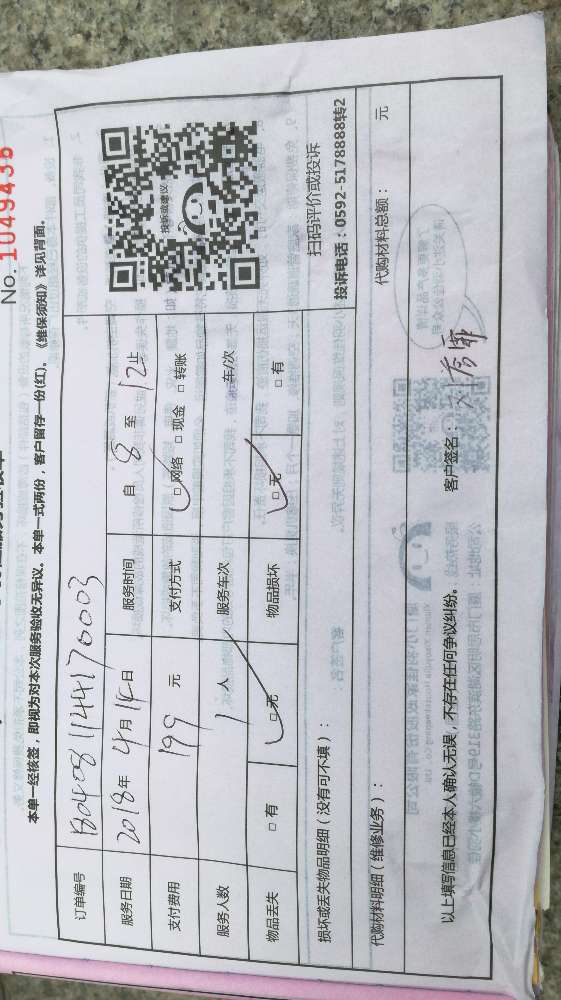 No. 1049436
本单一经核签，即视为对本次服务验收无异议。本单一式两份，客户留存一份(红)。《维保须知》详见背面。
订单编号 180408114417 0003
服务日期 2018年 4月 14日 服务时间 自 8 至 12止
支付费用 199 元 支付方式 ☑网络 □现金 □转账
服务人数 1 人 服务车次 车/次
物品丢失 □有 ☑无 物品损坏 ☑无 □有
投诉或建议
扫码评价或投诉
投诉电话：0592-5178888转2
损坏或丢失物品明细（没有可不填）：
代购材料明细（维修业务）： 代购材料总额： 元
以上填写信息已经本人确认无误，不存在任何争议纠纷。 客户签名：